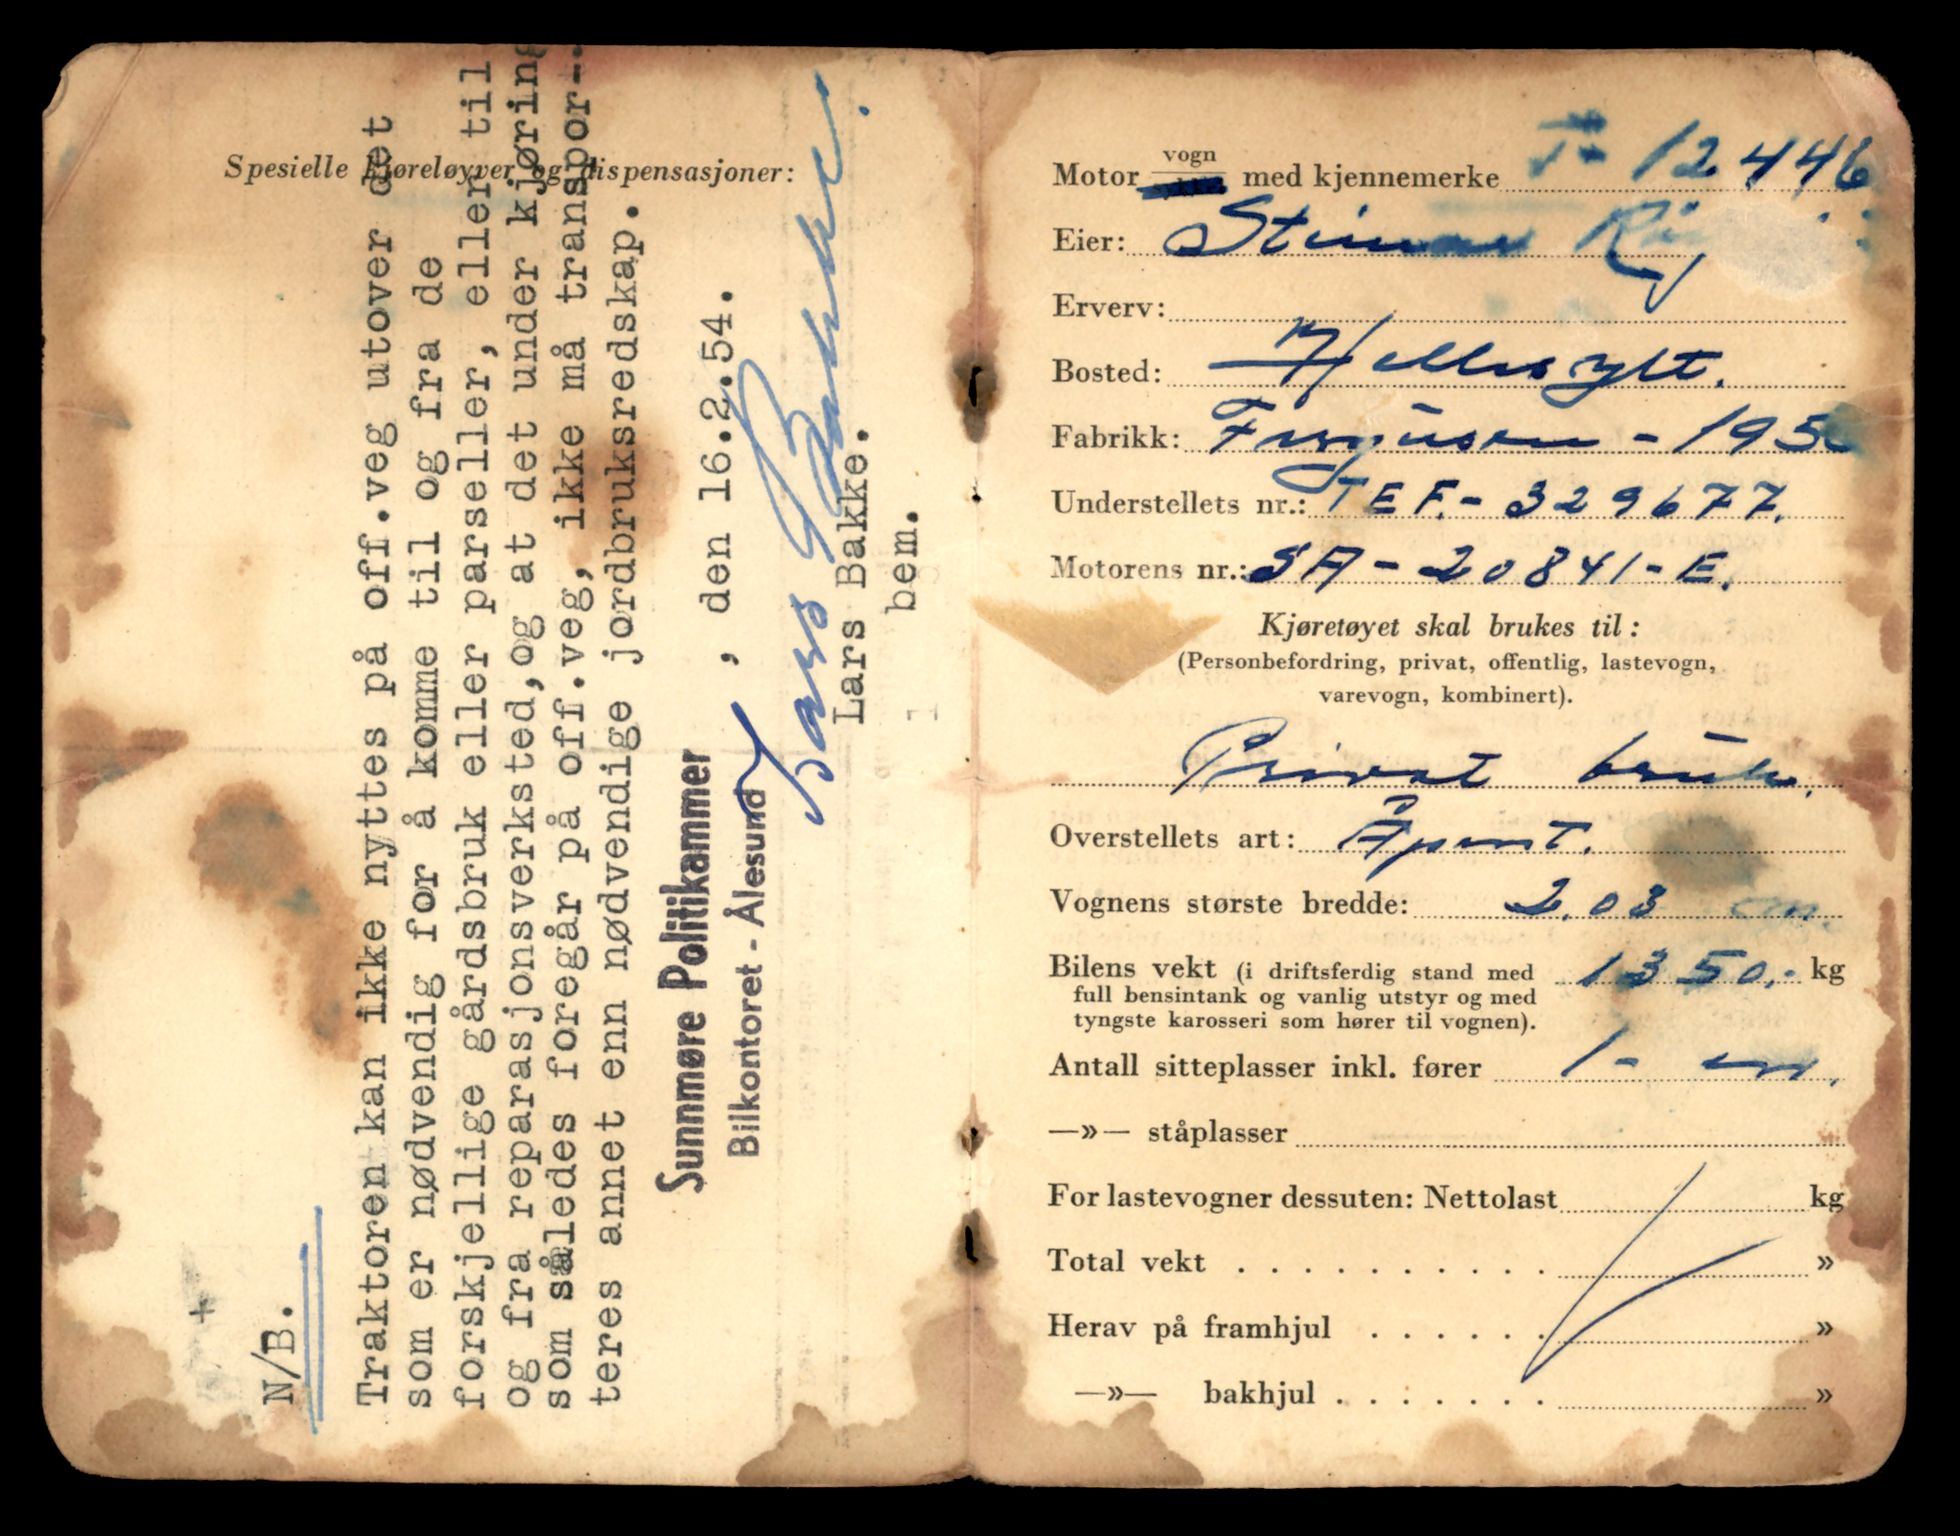 Spesielle kjøreløyver og dispensasjoner:
N/B.
Traktoren kan ikke nyttes på off.veg utover det
som er nødvendig for å komme til og fra de
forskjellige gårdsbruk eller parseller, eller til
og fra reparasjonsverksted,og at det under kjøring
som således foregår på off.veg, ikke må transpor-
teres annet enn nødvendige jordbruksredskap.
Sunnmøre Politikammer, den 16.2.54.
Bilkontoret - Ålesund
Lars Bakke.
Lars Bakke.
bem.
Motor vogn med kjennemerke T- 12446
Eier: Steinar
Erverv:
Bosted: Hellesylt.
Fabrikk: Ferguson - 195
Understellets nr.: TEF.- 329677.
Motorens nr.: SA - 20841 - E.
Kjøretøyet skal brukes til:
(Personbefordring, privat, offentlig, lastevogn,
varevogn, kombinert).
Privat bruk.
Overstellets art: Åpent.
Vognens største bredde: 2.03 m.
Bilens vekt (i driftsferdig stand med 1350.- kg
full bensintank og vanlig utstyr og med
tyngste karosseri som hører til vognen).
Antall sitteplasser inkl. fører 1 - en.
—»— ståplasser
For lastevogner dessuten: Nettolast kg
Total vekt . . . . . . . . . . »
Herav på framhjul . . . . . . »
—»— bakhjul . . . . . . . »